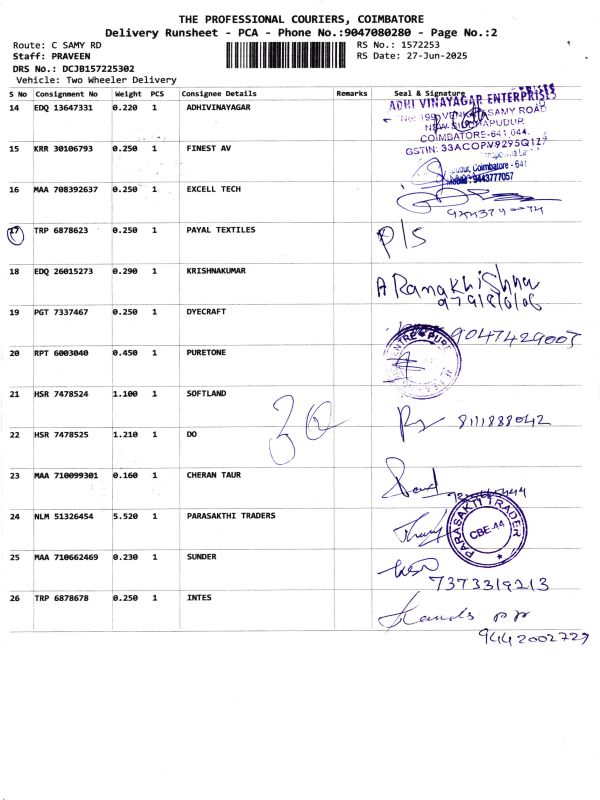 THE PROFESSIONAL COURIERS, COIMBATORE
Delivery Runsheet - PCA - Phone No.:9047080280 - Page No.:2
Route: C SAMY RD
RS No.: 1572253
Staff: PRAVEEN
RS Date: 27-Jun-2025
DRS No.: DCJB157225302
Vehicle: Two Wheeler Delivery
S No Consignment No Weight PCS Consignee Details Remarks Seal & Signature
14 EDQ 13647331 0.220 1 ADHIVINAYAGAR
ADHI VINAYAGAR ENTERPRISES
COIMBATORE-641 044.
GSTIN: 33ACOPV9295Q1Z7
15 KRR 30106793 0.250 1 FINEST AV
Coimbatore - 641
Mobile: 9443777057
16 MAA 708392637 0.250 1 EXCELL TECH
17 TRP 6878623 0.250 1 PAYAL TEXTILES P/S
18 EDQ 26015273 0.290 1 KRISHNAKUMAR
19 PGT 7337467 0.250 1 DYECRAFT
20 RPT 6003040 0.450 1 PURETONE
21 HSR 7478524 1.100 1 SOFTLAND
8111888042
22 HSR 7478525 1.210 1 DO
23 MAA 710099301 0.160 1 CHERAN TAUR
24 NLM 51326454 5.520 1 PARASAKTHI TRADERS
PARASAKTI TRADER
CBE-44
25 MAA 710662469 0.230 1 SUNDER
7373319213
26 TRP 6878678 0.250 1 INTES
9442002729